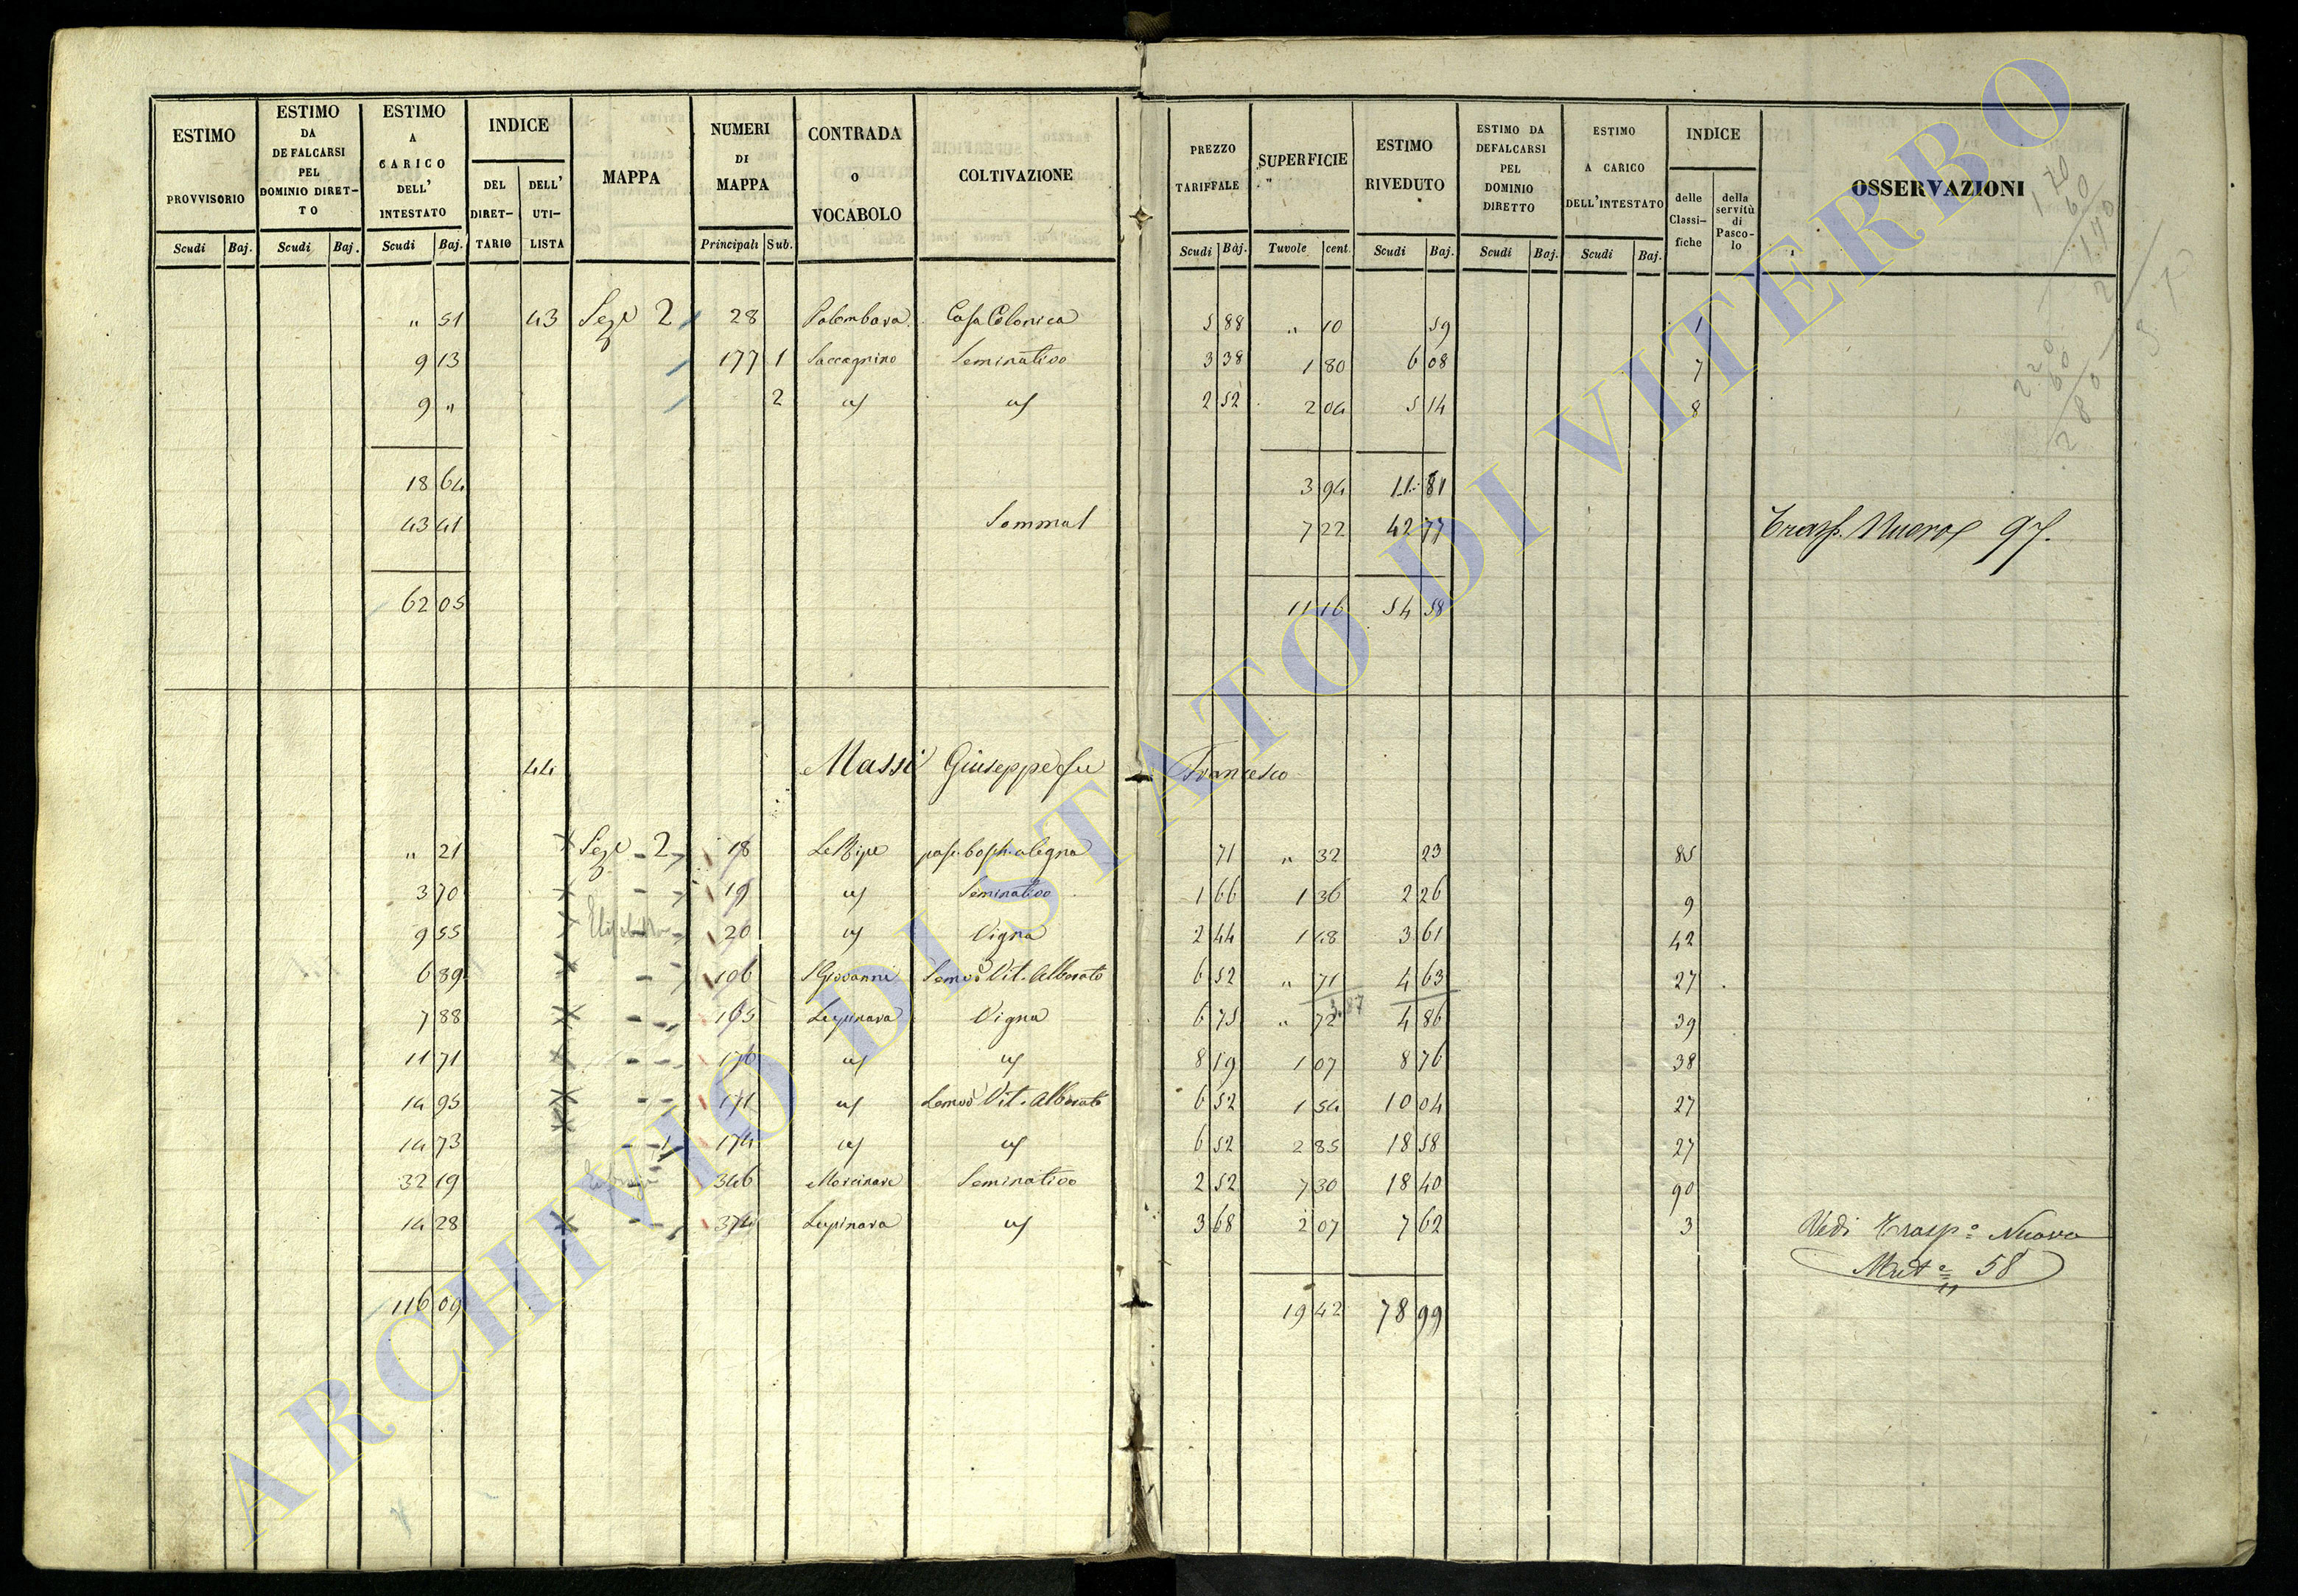 ESTIMO PROVVISORIO Scudi Baj.
ESTIMO DA DEFALCARSI PEL DOMINIO DIRET-TO Scudi Baj.
ESTIMO A CARICO DELL' INTESTATO Scudi Baj.
INDICE DEL DIRET-TARIO DELL' UTI-LISTA
MAPPA
NUMERI DI MAPPA Principali Sub.
CONTRADA O VOCABOLO
COLTIVAZIONE
PREZZO TARIFFALE Scudi Baj.
SUPERFICIE Tavole cent.
ESTIMO RIVEDUTO Scudi Baj.
ESTIMO DA DEFALCARSI PEL DOMINIO DIRETTO Scudi Baj.
ESTIMO A CARICO DELL'INTESTATO Scudi Baj.
INDICE delle Classi-fiche della servitù di Pasco-lo
OSSERVAZIONI
" 51 43 Sez.e 2 28 Palombara Casa Colonica 5 88 " 10 59 1
9 13 177 1 Saccagnino Seminativo 3 38 1 80 6 08 7
9 " 2 2 52 2 04 5 14 8
18 64 3 94 11 81
43 41 Somma 7 22 42 77 Trasp. Nuovo 97.
62 05 11 16 54 58
44 Massi Giuseppe fu Francesco
" 21 Sez.e 2 18 Le Ripe pasc. bosch. a legna 71 " 32 23 85
3 70 19 Seminativo 1 66 1 36 2 26 9
9 55 20 Vigna 2 44 1 48 3 61 42
6 89 106 S Giovanni Semvo Vit. Alberato 6 52 " 71 4 63 27
7 88 165 Lupinara Vigna 6 75 " 72 4 86 39
11 71 170 8 19 1 07 8 76 38
14 95 171 Semvo Vit. Alberato 6 52 1 54 10 04 27
14 73 174 6 52 2 85 18 58 27
32 19 346 Morcinare Seminativo 2 52 7 30 18 40 90
14 28 374 Lupinara 3 68 2 07 7 62 3 Vedi Trasp.o Nuovo
Mat.e 58
116 09 19 42 78 99
ARCHIVIO DI STATO DI VITERBO